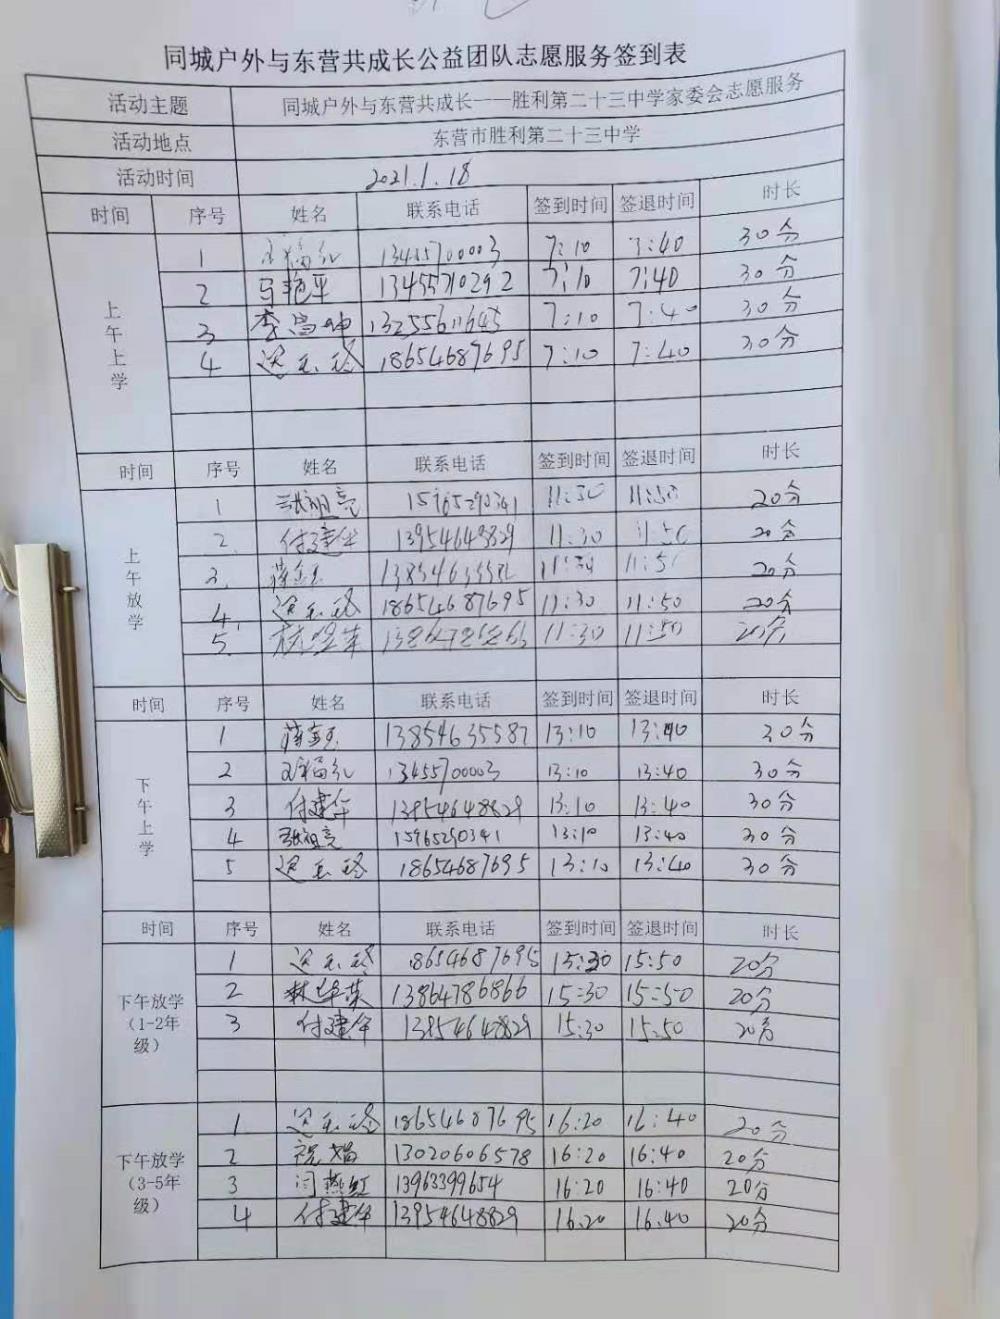 同城户外与东营共成长公益团队志愿服务签到表
活动主题 同城户外与东营共成长——胜利第二十三中学家委会志愿服务
活动地点 东营市胜利第二十三中学
活动时间 2021.1.18
时间 序号 姓名 联系电话 签到时间 签退时间 时长
上午上学
1 13455700003 7:10 7:40 30分
2 马艳平 13455710292 7:10 7:40 30分
3 李昌坤 13255611645 7:10 7:40 30分
4 18654687695 7:10 7:40 30分
时间 序号 姓名 联系电话 签到时间 签退时间 时长
上午放学
1 张祖亮 15965290341 11:30 11:50 20分
2 付建华 13954648829 11:30 11:50 20分
3. 蒋金玉 11:30 11:50 20分
4. 18654687695 11:30 11:50 20分
5. 11:30 11:50 20分
时间 序号 姓名 联系电话 签到时间 签退时间 时长
下午上学
1 蒋金玉 13854635587 13:10 13:40 30分
2 13455700003 13:10 13:40 30分
3 付建华 13954648829 13:10 13:40 30分
4 张祖亮 15965290341 13:10 13:40 30分
5 18654687695 13:10 13:40 30分
时间 序号 姓名 联系电话 签到时间 签退时间 时长
下午放学
(1-2年
级)
1 18654687695 15:30 15:50 20分
2 13864786866 15:30 15:50 20分
3 付建华 13954648829 15:30 15:50 20分
下午放学
(3-5年
级)
1 18654687695 16:20 16:40 20分
2 祝娟 13020606578 16:20 16:40 20分
3 闫燕红 13963399654 16:20 16:40 20分
4 付建华 13954648829 16.20 16.40 20分